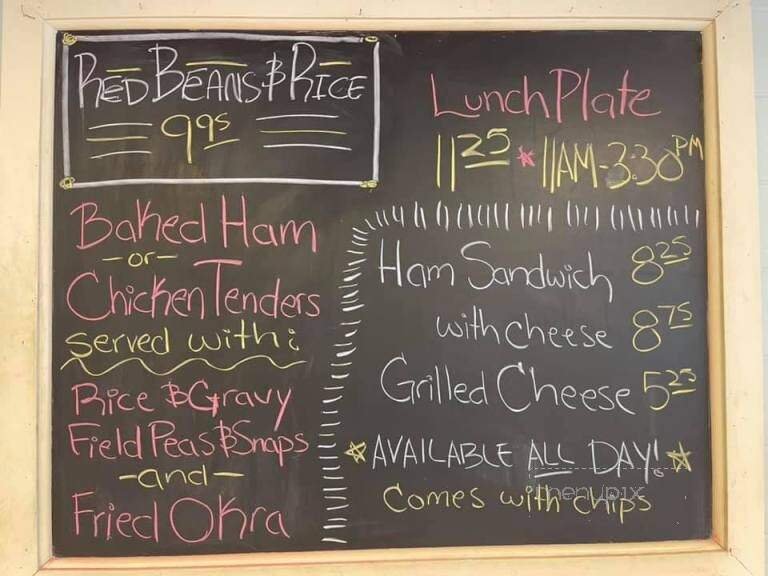 RED BEANS & RICE
9.95
Lunch Plate
11.25 * 11AM-3:30PM
Baked Ham
-or-
Chicken Tenders
served with:
Rice & Gravy
Field Peas & Snaps
-and-
Fried Okra
Ham Sandwich 8.25
with cheese 8.75
Grilled Cheese 5.25
☆ AVAILABLE ALL DAY! ☆
Comes with chips
menupix